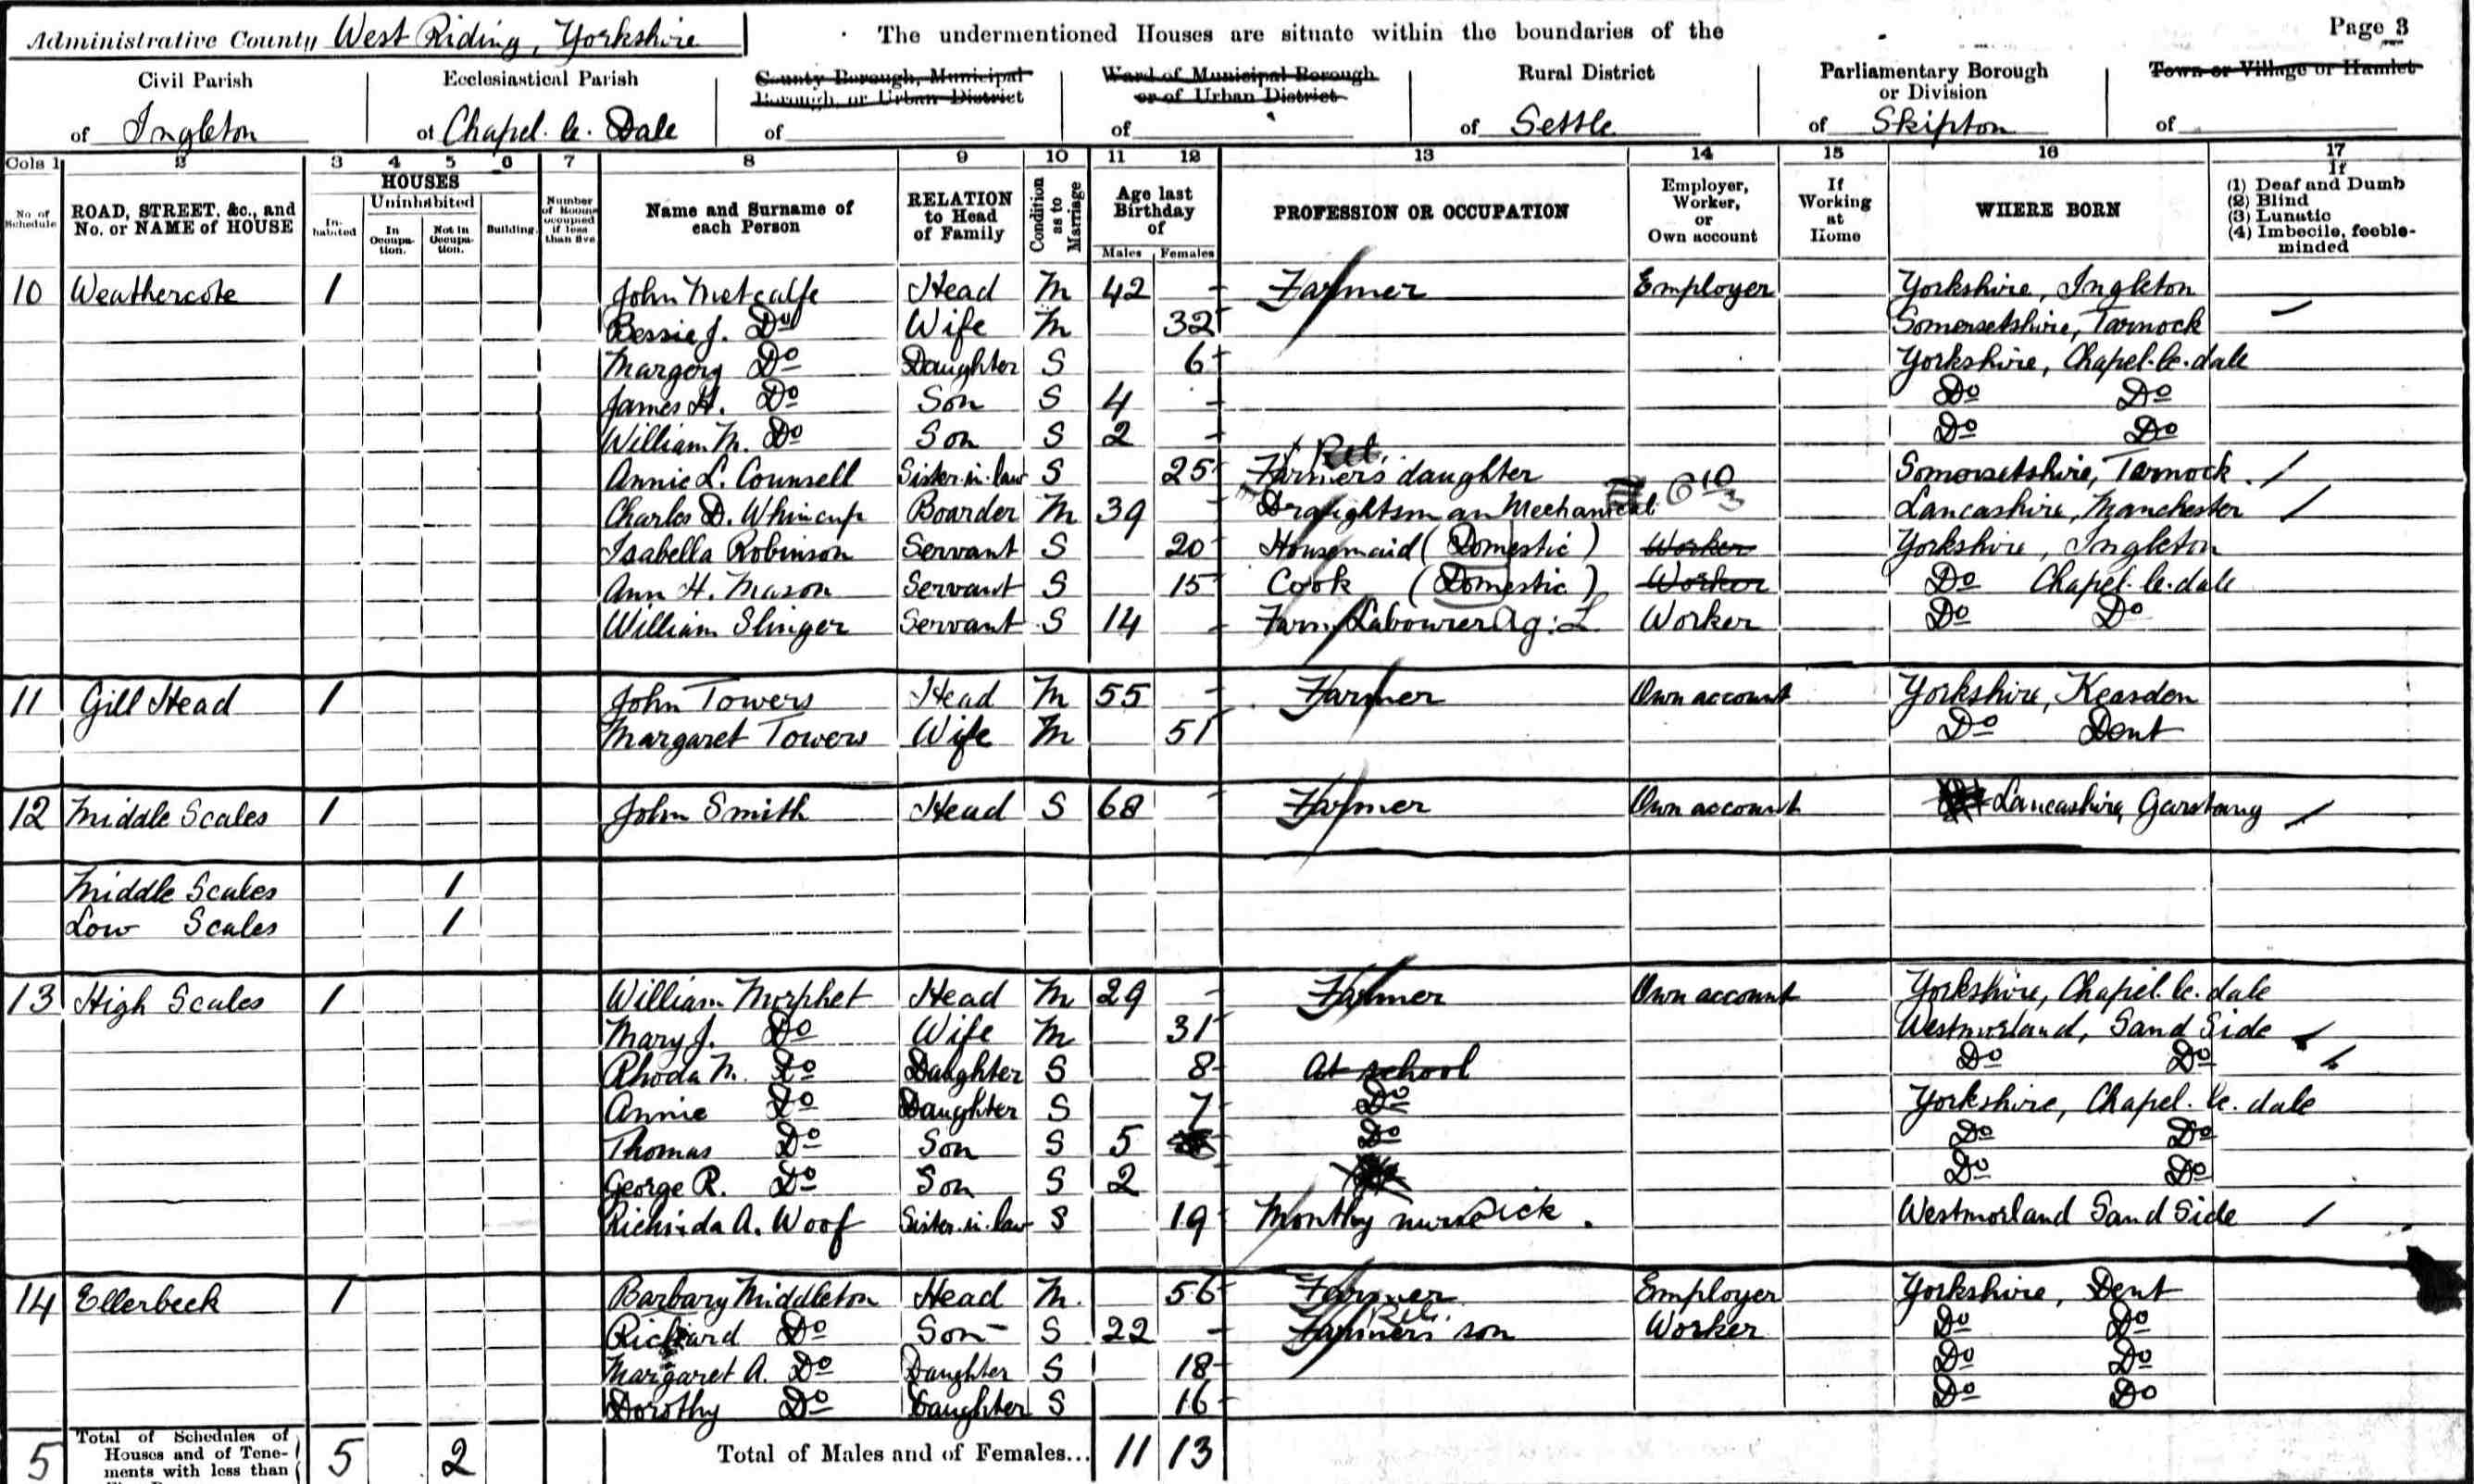 Administrative County West Riding, Yorkshire The undermentioned Houses are situate within the boundaries of the Page 3
Civil Parish Ecclesiastical Parish County Borough, Municipal Borough or Urban District Ward of Municipal Borough or of Urban District Rural District Parliamentary Borough or Division Town or Village or Hamlet
of Ingleton of Chapel. le. Dale of of of Settle of Skipton of
Cols 1 2 3 4 5 6 7 8 9 10 11 12 13 14 15 16 17
No. of Schedule ROAD, STREET, &c., and No. or NAME of HOUSE HOUSES Inhabited Uninhabited In Occupation. Not in Occupation. Building. Number of Rooms occupied if less than five Name and Surname of each Person RELATION to Head of Family Condition as to Marriage Age last Birthday of Males Females PROFESSION OR OCCUPATION Employer, Worker, or Own account If Working at Home WHERE BORN If (1) Deaf and Dumb (2) Blind (3) Lunatic (4) Imbecile, feeble-minded
10 Weathercote 1 John Metcalfe Head M 42 - Farmer Employer Yorkshire, Ingleton
Bessie J. Do Wife M 32 Somersetshire, Tarnock
Margery Do Daughter S 6 Yorkshire, Chapel. le. dale
James H. Do Son S 4 - Do Do
William M. Do Son S 2 - Do Do
Annie L. Counsell Sister. in. law S 25 Farmer's daughter Rel. Somersetshire, Tarnock
Charles D. Whincup Boarder M 39 - Draughtsman Mechanical Lancashire, Manchester
Isabella Robinson Servant S 20 Housemaid (Domestic) Worker Yorkshire, Ingleton
Ann H. Mason Servant S 15 Cook (Domestic) Worker Do Chapel. le. dale
William Slinger Servant S 14 - Farm Labourer Ag: L Worker Do Do
11 Gill Head 1 John Towers Head M 55 - Farmer Own account Yorkshire, Keasden
Margaret Towers Wife M 51 Do Dent
12 Middle Scales 1 John Smith Head S 68 - Farmer Own account Lancashire, Garstang
Middle Scales 1
Low Scales 1
13 High Scales 1 William Morphet Head M 29 - Farmer Own account Yorkshire, Chapel. le. dale
Mary J. Do Wife M 31 Westmorland, Sand Side
Rhoda M. Do Daughter S 8 At school Do Do
Annie Do Daughter S 7 Do Yorkshire, Chapel. le. dale
Thomas Do Son S 5 Do Do Do
George R. Do Son S 2 Do Do
A. Woof Sister. in. law S 19 Monthy nurse Sick. Westmorland Sand Side
14 Ellerbeck 1 Barbary Middleton Head M. 56 Farmer Employer Yorkshire, Dent
Richard Do Son S 22 - Farmers son Rel. Worker Do Do
Margaret A. Do Daughter S 18 Do Do
Dorothy Do Daughter S 16 Do Do
5 Total of Schedules of Houses and of Tenements with less than 5 2 Total of Males and of Females... 11 13